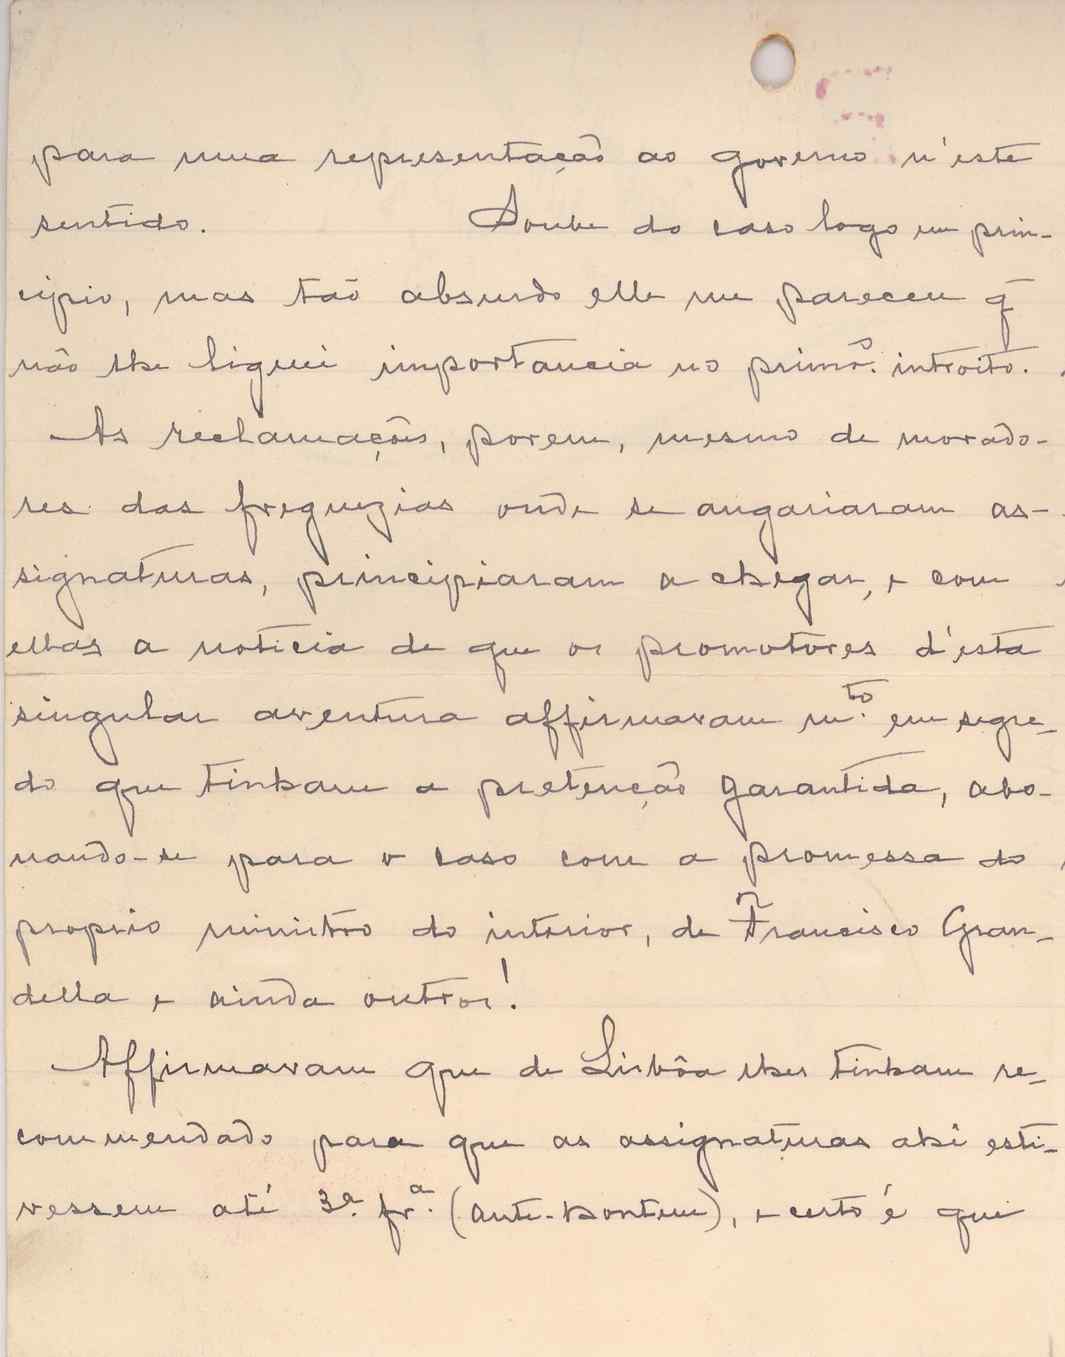 para uma representação ao governo n'este
sentido. Soube do caso logo em prin-
cipio, mas tão absurdo elle me pareceu q̃
não lhe liguei importancia no primro. introito.
As reclamações, porem, mesmo de morado-
res das freguezias onde se angariaram as-
signaturas, principiaram a chegar, e com
ellas a noticia de que os promotores d'esta
singular aventura affirmavam mto. em segre-
do que tinham a pretenção garantida, abo-
nando-se para o caso com a promessa do
proprio ministro do interior, de Francisco Gran-
della e ainda outros!
Affirmavam que de Lisbôa lhes tinham re-
commendado para que as assignaturas ahi esti-
vessem até 3ª. frª. (ante-hontem), e certo é que